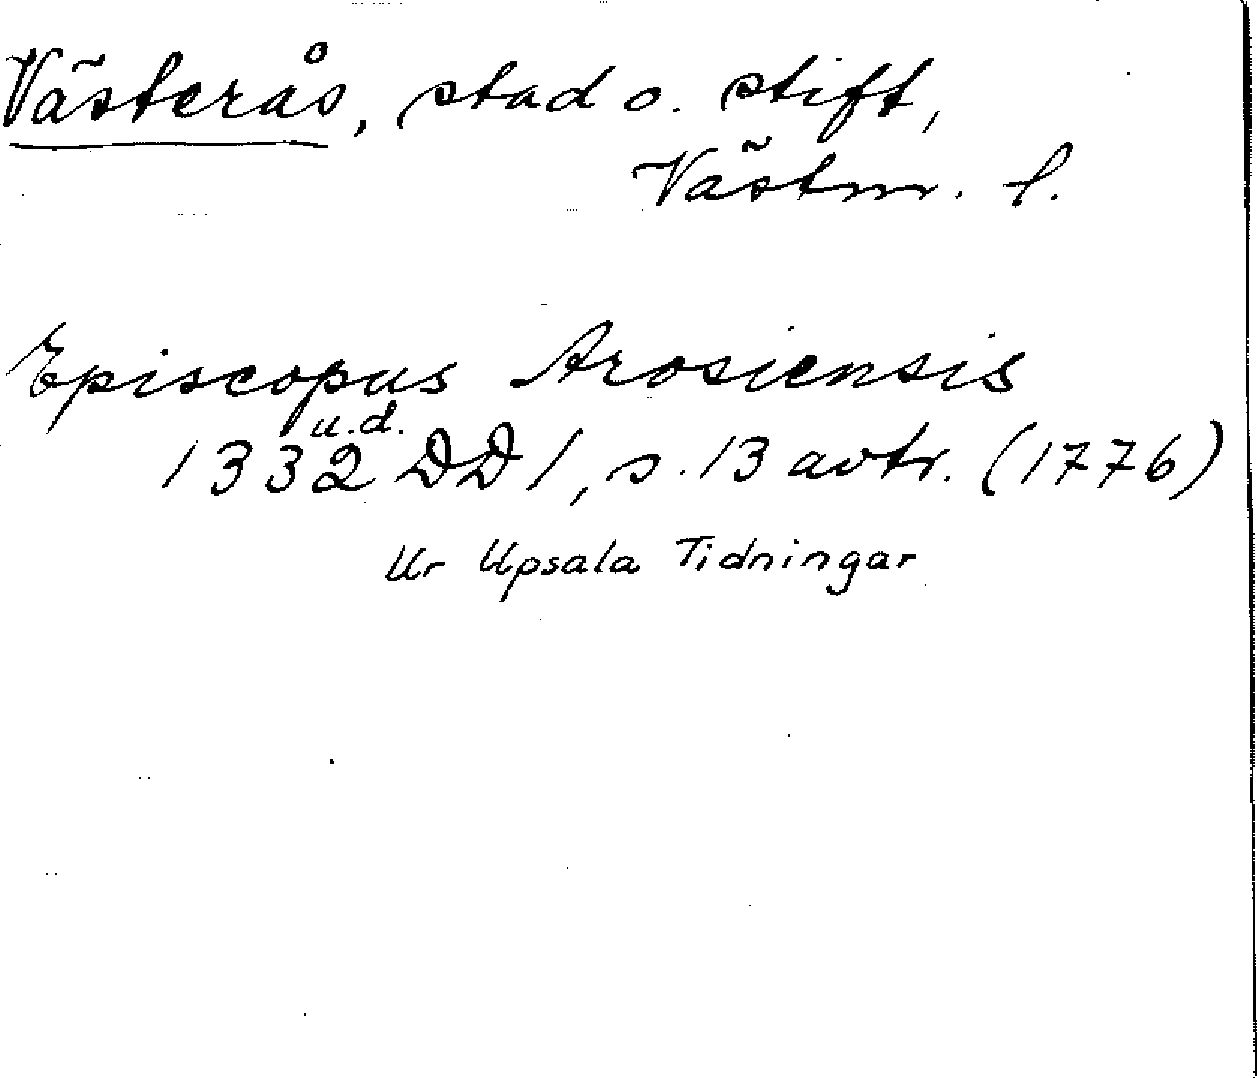 Västerås, stad o. stift,
Västm. l.
Episcopus Arosiensis
u.d.
1332 DD 1, s. 13 avtr. (1776)
Ur Upsala Tidningar